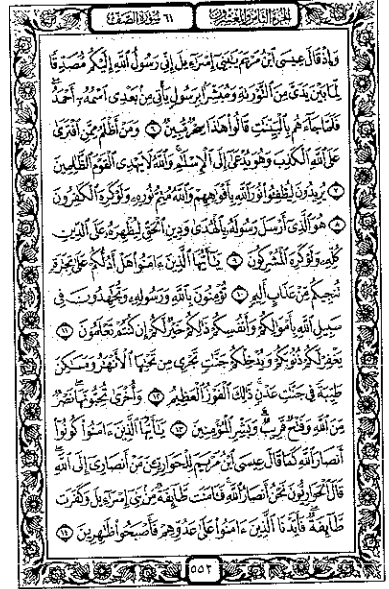 الجزء الثامن والعشرون ٦١ سورة الصف
وإذ قال عيسى ابن مريم يبني إسرءيل إني رسول الله إليكم مصدقا
لما بين يدي من التورىة ومبشرا برسول يأتي من بعدي اسمه أحمد
فلما جاءهم بالبينت قالوا هذا سحر مبين ٦ ومن أظلم ممن افترى
على الله الكذب وهو يدعى إلى الإسلم والله لا يهدي القوم الظلمين
٧ يريدون ليطفئوا نور الله بأفوههم والله متم نوره ولو كره الكفرون
٨ هو الذي أرسل رسوله بالهدى ودين الحق ليظهره على الدين
كله ولو كره المشركون ٩ يأيها الذين ءامنوا هل أدلكم على تجرة
تنجيكم من عذاب أليم ١٠ تؤمنون بالله ورسوله وتجهدون في
سبيل الله بأمولكم وأنفسكم ذلكم خير لكم إن كنتم تعلمون ١١
يغفر لكم ذنوبكم ويدخلكم جنت تجري من تحتها الأنهر ومسكن
طيبة في جنت عدن ذلك الفوز العظيم ١٢ وأخرى تحبونها نصر
من الله وفتح قريب وبشر المؤمنين ١٣ يأيها الذين ءامنوا كونوا
أنصار الله كما قال عيسى ابن مريم للحوارين من أنصاري إلى الله
قال الحواريون نحن أنصار الله فءامنت طائفة من بني إسرءيل وكفرت
طائفة فأيدنا الذين ءامنوا على عدوهم فأصبحوا ظهرين ١٤
٥٥٢